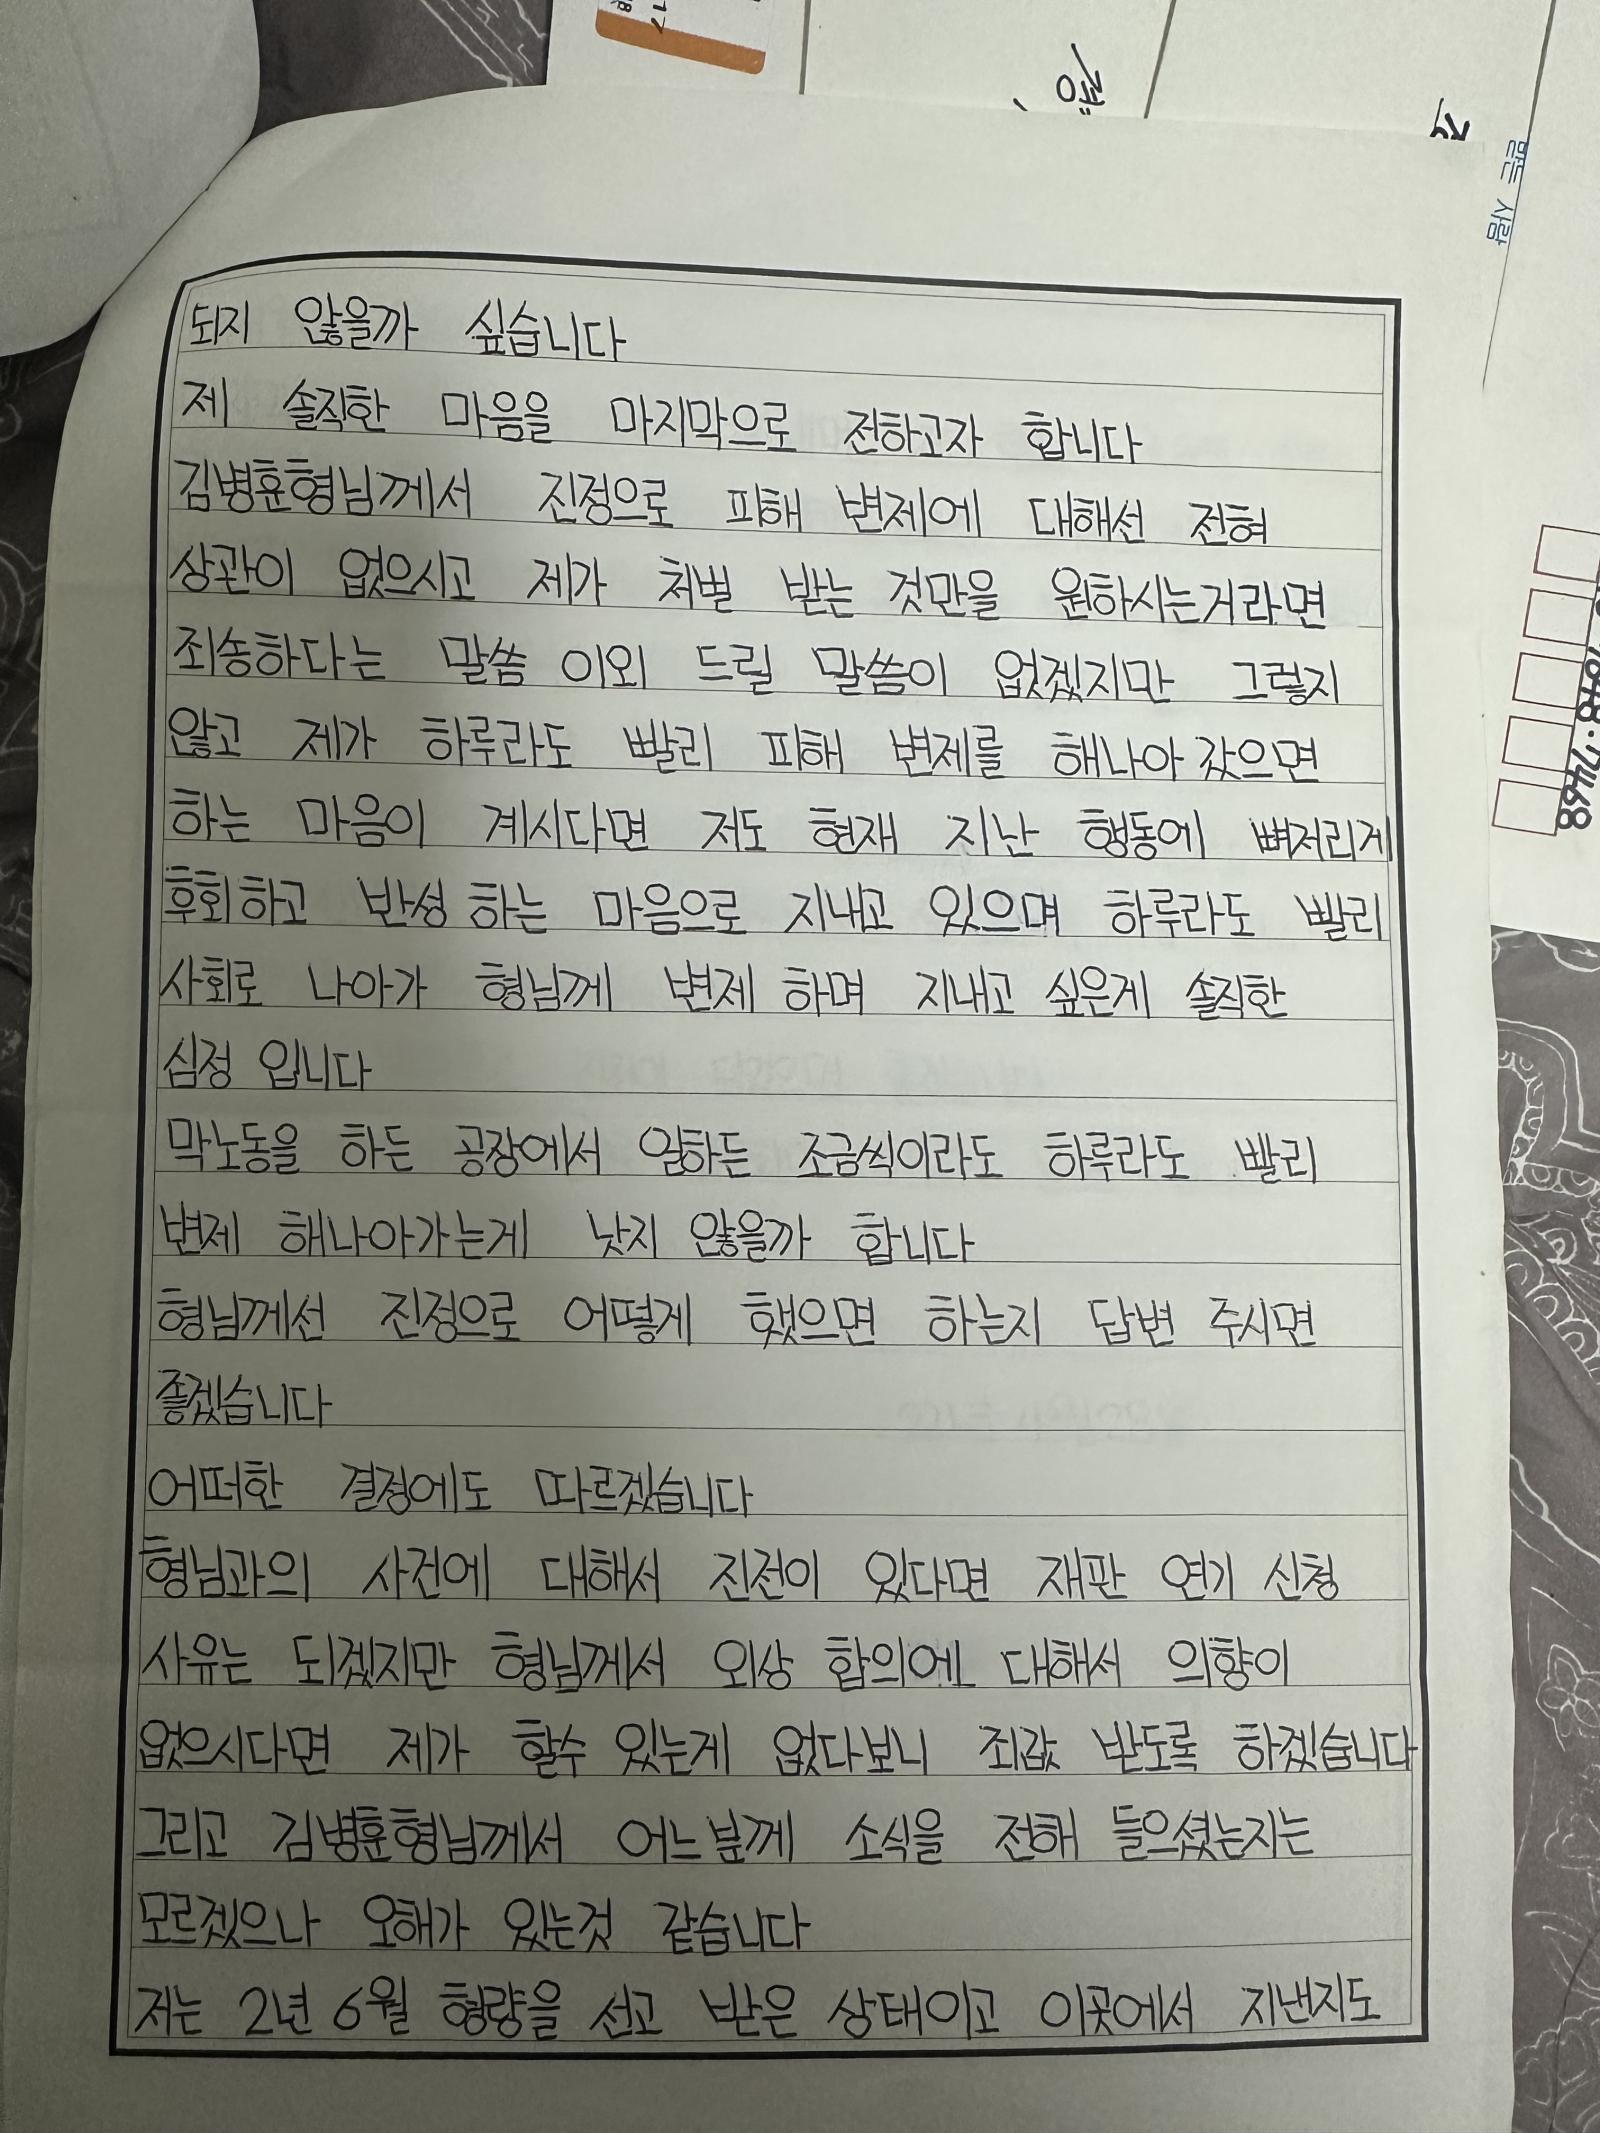 받는 사람
7468
되지 않을까 싶습니다
제 솔직한 마음을 마지막으로 전하고자 합니다
김병훈형님께서 진정으로 피해 변제에 대해선 전혀
상관이 없으시고 제가 처벌 받는 것만을 원하시는거라면
죄송하다는 말씀 이외 드릴 말씀이 없겠지만 그렇지
않고 제가 하루라도 빨리 피해 변제를 해나아 갔으면
하는 마음이 계시다면 저도 현재 지난 행동에 뼈저리게
후회하고 반성 하는 마음으로 지내고 있으며 하루라도 빨리
사회로 나아가 형님께 변제 하며 지내고 싶은게 솔직한
심정 입니다
막노동을 하든 공장에서 일하든 조금씩이라도 하루라도 빨리
변제 해나아가는게 낫지 않을까 합니다
형님께선 진정으로 어떻게 했으면 하는지 답변 주시면
좋겠습니다
어떠한 결정에도 따르겠습니다
형님과의 사건에 대해서 진전이 있다면 재판 연기 신청
사유는 되겠지만 형님께서 외상 합의에 대해서 의향이
없으시다면 제가 할수 있는게 없다보니 죄값 받도록 하겠습니다
그리고 김병훈형님께서 어느분께 소식을 전해 들으셨는지는
모르겠으나 오해가 있는것 같습니다
저는 2년 6월 형량을 선고 받은 상태이고 이곳에서 지낸지도